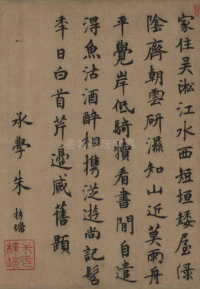 家住吳淞江水西短垣矮屋綠
陰齊朝雲研濕知山近莫雨舟
平覺岸低騎犢看書閒自遣
得魚沽酒醉相攜泛遊尚記髫
秊日白首芹邊感舊題
承學朱